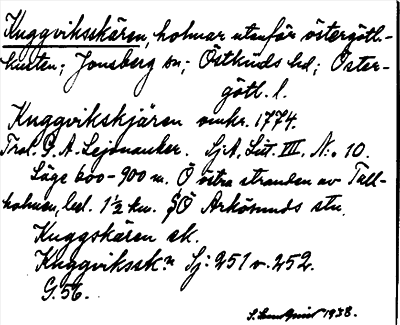 Kuggviksskären, holmar utanför östergötl.-
kusten; Jonsberg sn; Östkinds hd; Öster-
götl. l.
Kuggvikskjären omkr. 1774.
Trol. P. A. Lejonancker. SjA, Lit. III. No 10.
Läge 600-900 m. Ö östra stranden av Tall-
holmen, bel. 1½ km. SÖ Arkösunds stn.
Kuggskären ek.
Kuggvikssk:n Sj: 251 v. 252.
G. 56.
S. Lundqvist 1938.